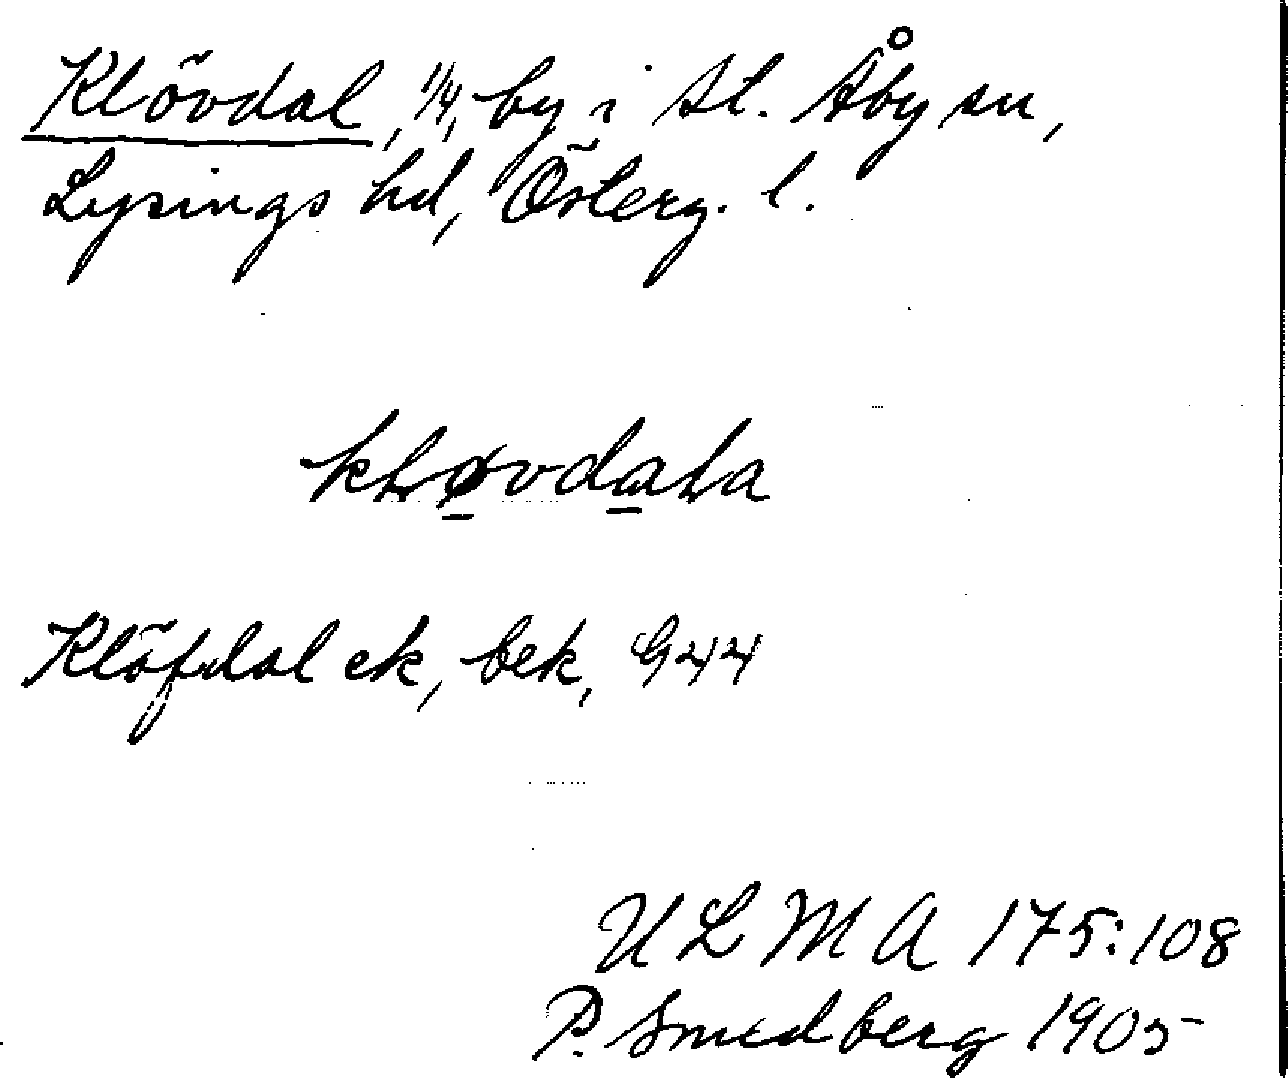 Klövdal, 1/4, by i St. Åby sn,
Lysings hd, Österg. l.
kLøvdaLa
Klöfdal ek, bek, G44
ULMA 175:108
P. Smedberg 1905